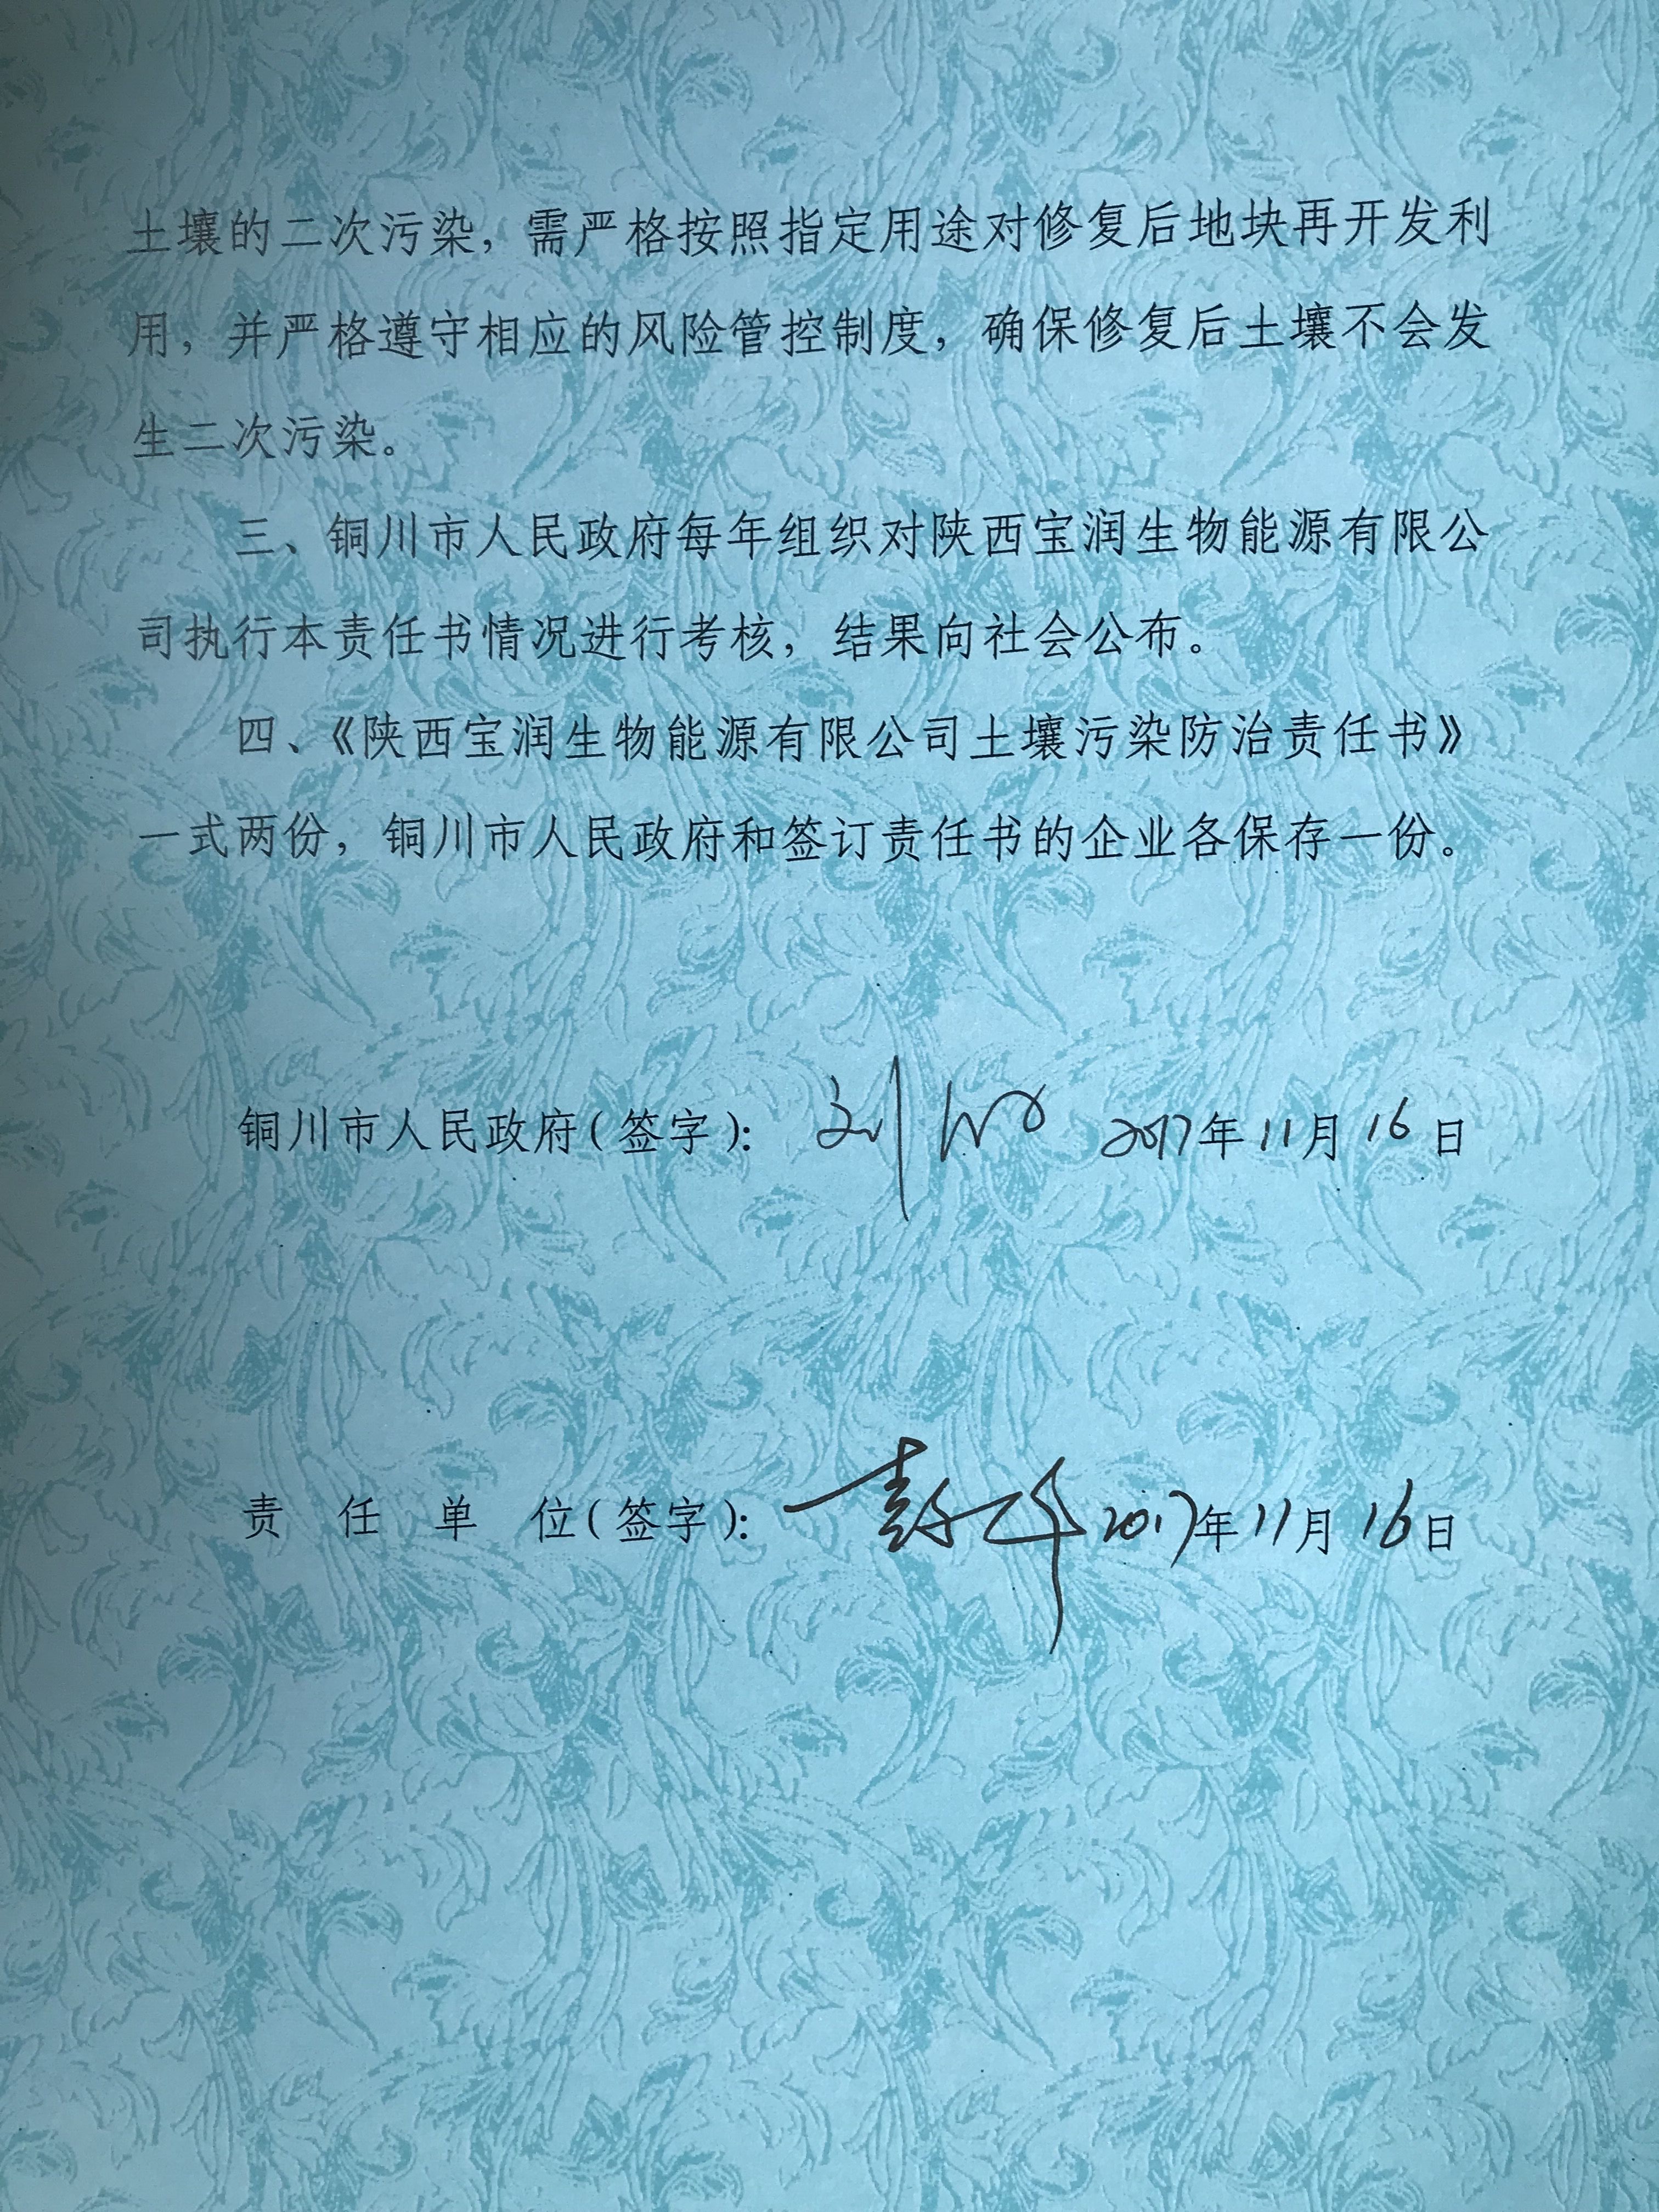 土壤的二次污染，需严格按照指定用途对修复后地块再开发利
用，并严格遵守相应的风险管控制度，确保修复后土壤不会发
生二次污染。
三、铜川市人民政府每年组织对陕西宝润生物能源有限公
司执行本责任书情况进行考核，结果向社会公布。
四、《陕西宝润生物能源有限公司土壤污染防治责任书》
一式两份，铜川市人民政府和签订责任书的企业各保存一份。
铜川市人民政府(签字)： 刘 2017年11月16日
责任单位(签字)： 2017年11月16日